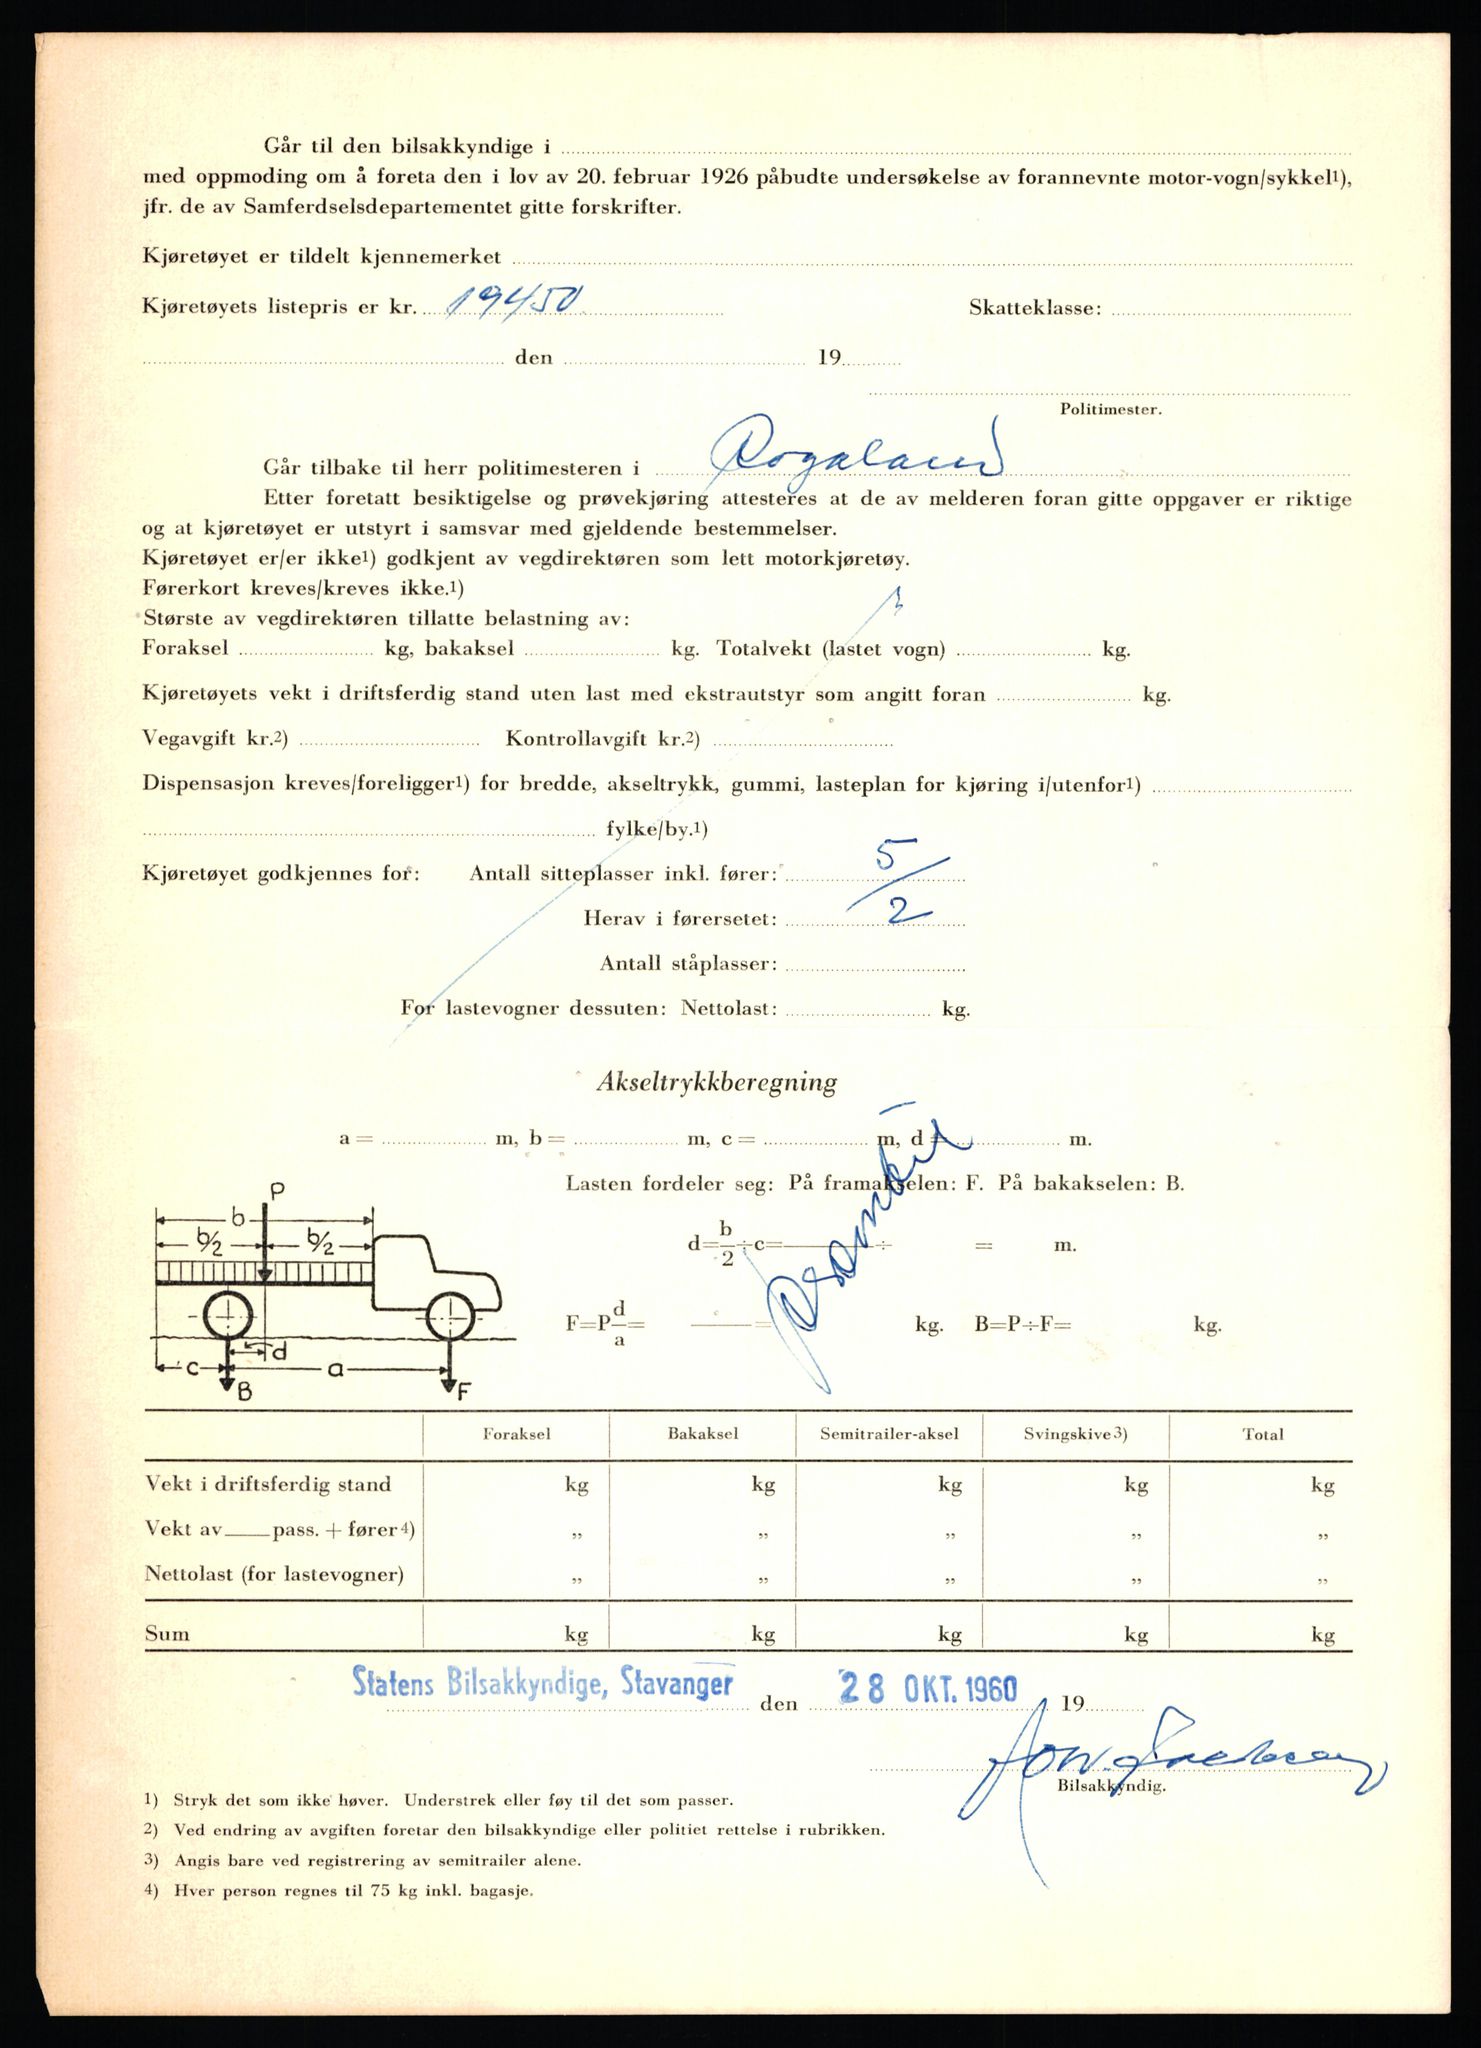 Går til den bilsakkyndige i
med oppmoding om å foreta den i lov av 20. februar 1926 påbudte undersøkelse av forannevnte motor-vogn/sykkel1),
jfr. de av Samferdselsdepartementet gitte forskrifter.
Kjøretøyet er tildelt kjennemerket
Kjøretøyets listepris er kr. 19450 Skatteklasse:
den 19
Politimester.
Går tilbake til herr politimesteren i Rogaland
Etter foretatt besiktigelse og prøvekjøring attesteres at de av melderen foran gitte oppgaver er riktige
og at kjøretøyet er utstyrt i samsvar med gjeldende bestemmelser.
Kjøretøyet er/er ikke1) godkjent av vegdirektøren som lett motorkjøretøy.
Førerkort kreves/kreves ikke.1)
Største av vegdirektøren tillatte belastning av:
Foraksel kg, bakaksel kg. Totalvekt (lastet vogn) kg.
Kjøretøyets vekt i driftsferdig stand uten last med ekstrautstyr som angitt foran kg.
Vegavgift kr.2) Kontrollavgift kr.2)
Dispensasjon kreves/foreligger1) for bredde, akseltrykk, gummi, lasteplan for kjøring i/utenfor1)
fylke/by.1)
Kjøretøyet godkjennes for: Antall sitteplasser inkl. fører: 5
Herav i førersetet: 2
Antall ståplasser:
For lastevogner dessuten: Nettolast: kg.
Akseltrykkberegning
a = m, b = m, c = m, d = m.
Lasten fordeler seg: På framakselen: F. På bakakselen: B.
P
b
b/2 b/2
d=b/2÷c= ÷ = m.
F=P d/a= = kg. B=P÷F= kg.
c d a
B F
Foraksel Bakaksel Semitrailer-aksel Svingskive3) Total
Vekt i driftsferdig stand kg kg kg kg kg
Vekt av pass. + fører4) „ „ „ „ „
Nettolast (for lastevogner) „ „ „ „ „
Sum kg kg kg kg kg
Statens Bilsakkyndige, Stavanger den 28 OKT. 1960 19
Bilsakkyndig.
1) Stryk det som ikke høver. Understrek eller føy til det som passer.
2) Ved endring av avgiften foretar den bilsakkyndige eller politiet rettelse i rubrikken.
3) Angis bare ved registrering av semitrailer alene.
4) Hver person regnes til 75 kg inkl. bagasje.